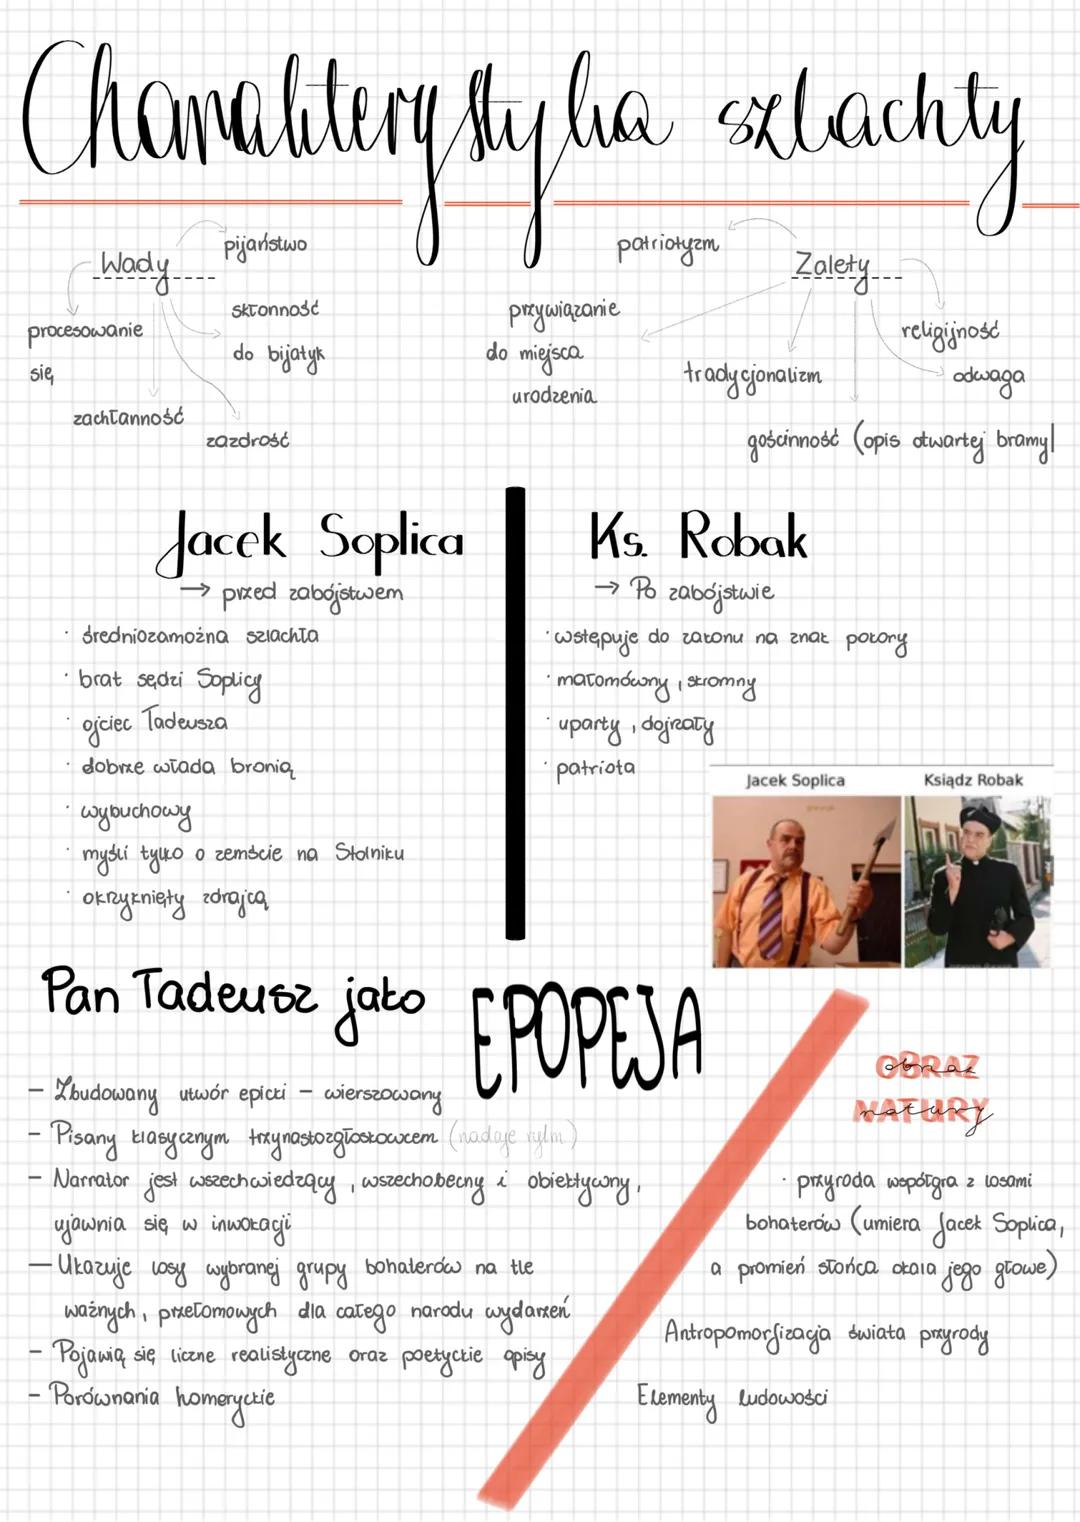 Charakterystyka szlachty
Wady
pijaństwo
skłonność
do bijatyk
procesowanie
się
zachłanność
zazdrość
patriotyzm
Zalety
przywiązanie
do miejsca
urodzenia
tradycjonalizm
religijność
odwaga
gościnność (opis otwartej bramy)
Jacek Soplica
→ przed zabójstwem
· średniozamożna szlachta
· brat sędzi Soplicy
· ojciec Tadeusza
· dobrze włada bronią
· wybuchowy
· myśli tylko o zemście na Stolniku
· okrzyknięty zdrajcą
Ks. Robak
→ Po zabójstwie
· wstępuje do zakonu na znak pokory
· małomówny, skromny
· uparty, dojrzały
· patriota
Jacek Soplica
Ksiądz Robak
Pan Tadeusz jako EPOPEJA
– Zbudowany utwór epicki – wierszowany
– Pisany klasycznym trzynastozgłoskowcem (nadaje rytm)
– Narrator jest wszechwiedzący, wszechobecny i obiektywny,
ujawnia się w inwokacji
– Ukazuje losy wybranej grupy bohaterów na tle
ważnych, przełomowych dla całego narodu wydarzeń
– Pojawią się liczne realistyczne oraz poetyckie opisy
– Porównania homeryckie
OBRAZ
NATURY
obraz
natury
· przyroda współgra z losami
bohaterów (umiera Jacek Soplica,
a promień słońca okala jego głowe)
Antropomorfizacja świata przyrody
Elementy ludowości